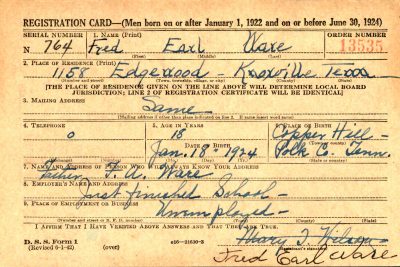 REGISTRATION CARD—(Men born on or after January 1, 1922 and on or before June 30, 1924)
SERIAL NUMBER 1. NAME (Print) ORDER NUMBER
N 764 Fred Earl Ware 13535
(First) (Middle) (Last)
2. PLACE OF RESIDENCE (Print)
1158 Edgewood - Knoxville Tenn
(Number and street) (Town, township, village, or city) (County) (State)
[THE PLACE OF RESIDENCE GIVEN ON THE LINE ABOVE WILL DETERMINE LOCAL BOARD
JURISDICTION; LINE 2 OF REGISTRATION CERTIFICATE WILL BE IDENTICAL]
3. MAILING ADDRESS
Same
[Mailing address if other than place indicated on line 2. If same insert word same]
4. TELEPHONE 5. AGE IN YEARS 6. PLACE OF BIRTH
0 18 Copper Hill -
DATE OF BIRTH
Jan. 18 - 1924 Polk C. Tenn.
7. NAME AND ADDRESS OF PERSON WHO WILL ALWAYS KNOW YOUR ADDRESS
Father, F. A. Ware
8. EMPLOYER'S NAME AND ADDRESS
Just finished School -
9. PLACE OF EMPLOYMENT OR BUSINESS
Unemployed -
(Number and street or R. F. D. number) (Town) (County) (State)
I AFFIRM THAT I HAVE VERIFIED ABOVE ANSWERS AND THAT THEY ARE TRUE.
D. S. S. Form 1
(Revised 6-1-42) (over) 16—21630-2
Fred Earl Ware